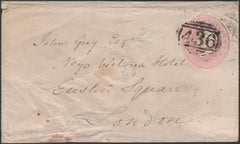 436
John Gray Esqr
Victoria Hotel
Euston Square
London